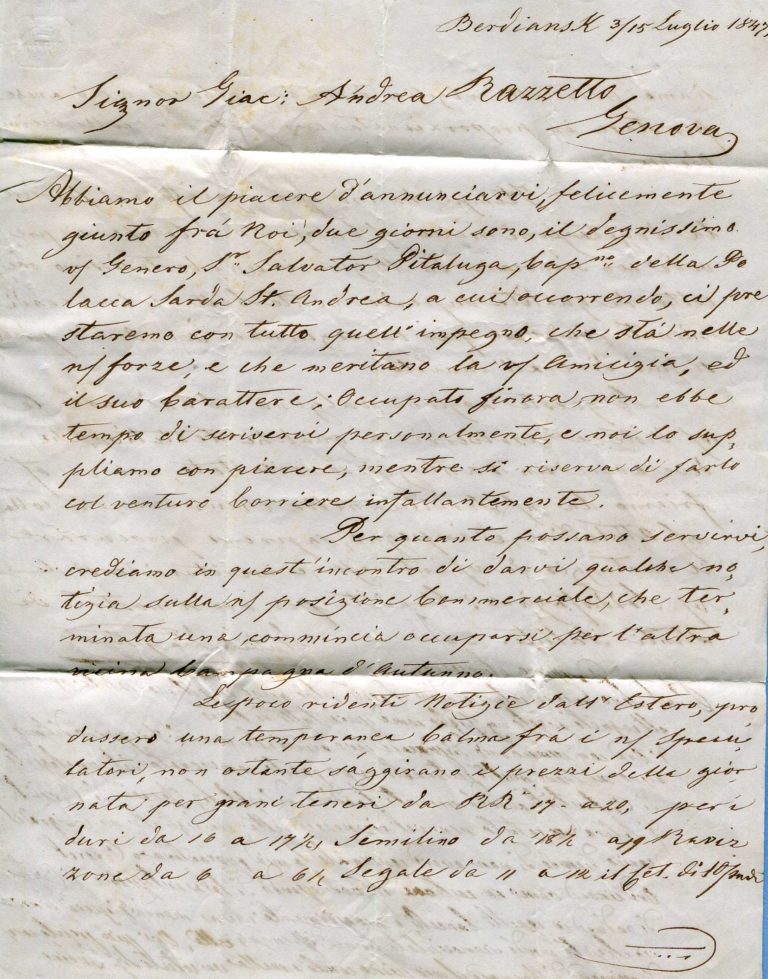 Berdiansk 3/15 Luglio 1847,
Signor Giac: Andrea Razzetto
Genova
Abbiamo il piacere d'annunciarvi, felicemente
giunto frá Noi, due giorni sono, il degnissimo
v/ Genero, Sr. Salvator Pitaluga, Cap.no della Po
lacca Sarda St. Andrea, a cui occorrendo, ci pre
staremo con tutto quell'impegno, che stá nelle
n/ forze, e che meritano la v/ Amicizia, ed
il suo Carattere; Occupato finora, non ebbe
tempo di scrivervi personalmente, e noi lo sup,,
pliamo con piacere, mentre si riserva di farlo
col venturo Corriere infallantemente.
Per quanto possano servirvi,
crediamo in quest'incontro di darvi qualche no,,
tizia sulla n/ posizione Commerciale, che ter,,
minata una, commincia occuparsi per l'altra
vicina Campagna d'Autunno.
Le poco ridenti Notizie dall'Estero, pro
dussero una temporanea Calma fra i n/ Specu,,
latori, non ostante s'aggirano i prezzi della gior
nata per grani teneri da RRi 17- a 20, per i
duri da 16 a 17½, Semilino da 18½ a 19 Raviz
zone da 6 a 6½ Segale da 11 a 12 il Cet. di 10 pudi